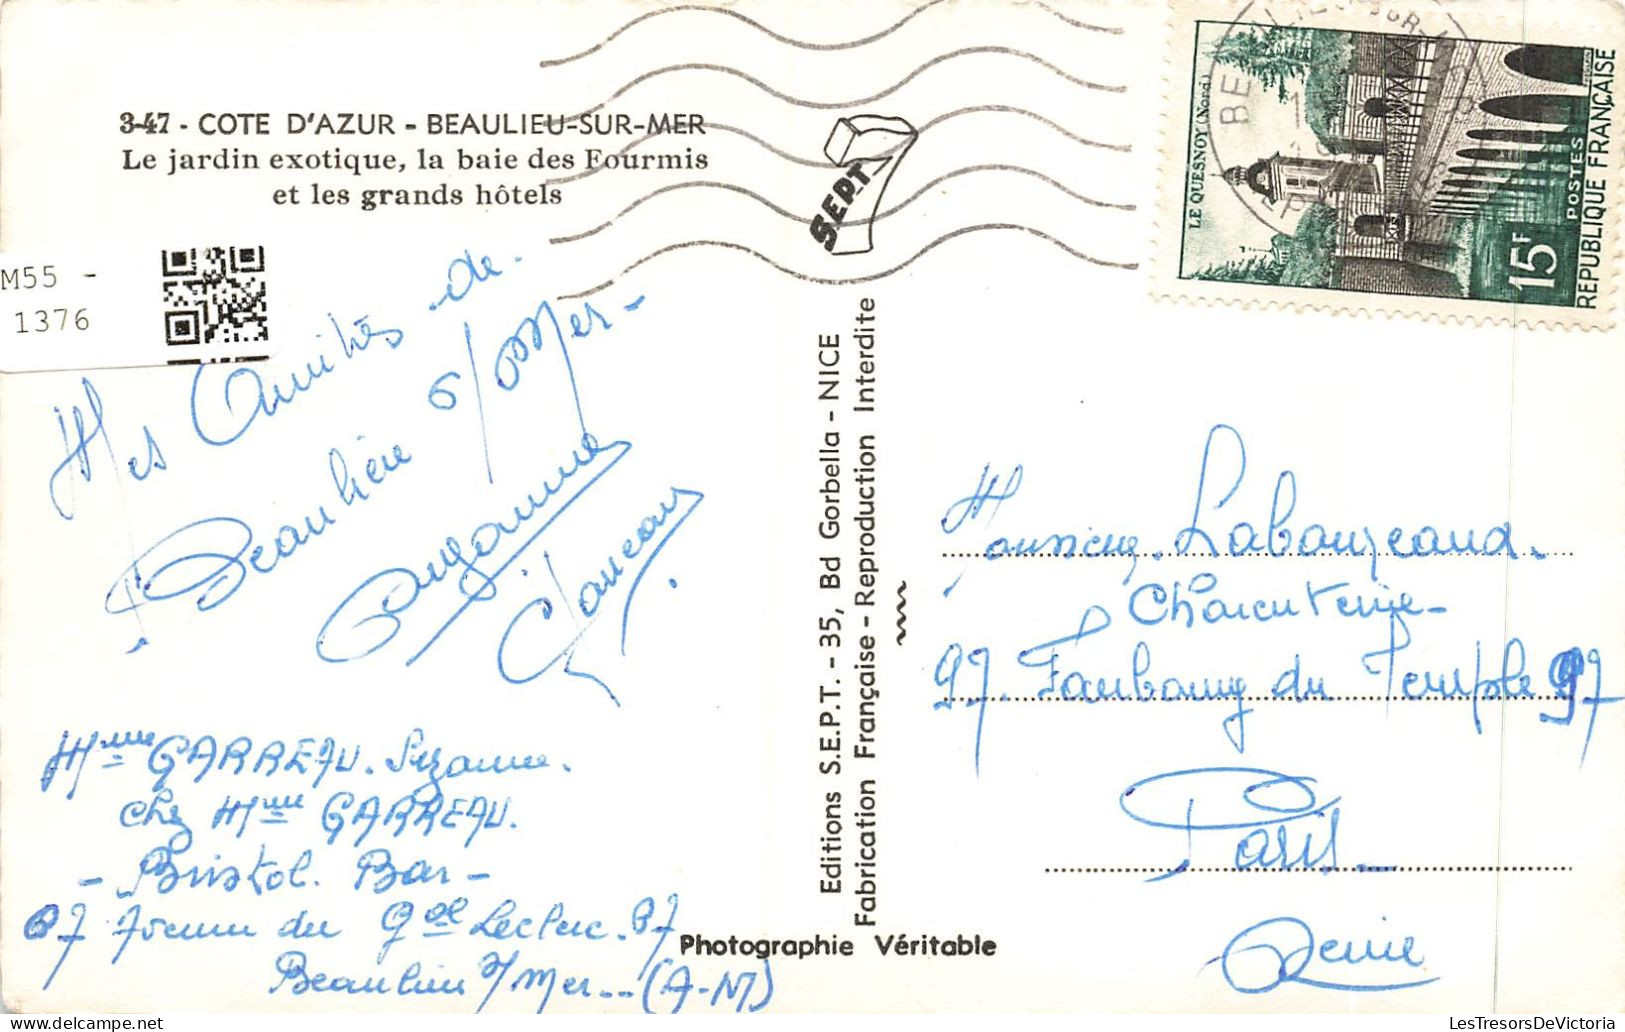 3-47 - COTE D'AZUR - BEAULIEU-SUR-MER
Le jardin exotique, la baie des Fourmis
et les grands hôtels
M55 -
1376
SEPT
LE QUESNOY (Nord)
15F
POSTES
REPUBLIQUE FRANÇAISE
Mes Amitiés de
Beaulieu s/Mer -
Suzanne
Editions S.E.P.T. - 35, Bd Gorbella - NICE
Fabrication Française - Reproduction Interdite
Photographie Véritable
Mme GARREAU. Suzanne.
chez Mme GARREAU.
- Bristol. Bar -
Avenue du Gal Leclerc.
Beaulieu s/Mer... (A-M)
Monsieur. Labouzeaud.
Charcuterie -
97. Faubourg du Temple 97
Paris -
Seine
LesTresorsDeVictoria.com